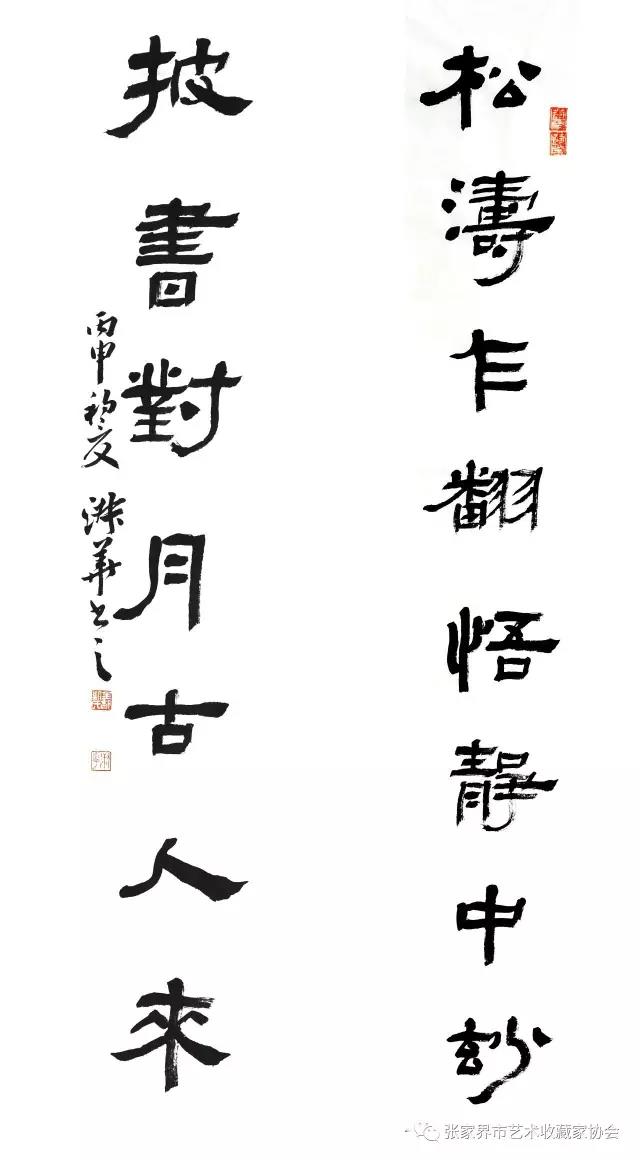 松濤乍翻悟靜中玅
披書對月古人來
丙申初夏 華书之
张家界市艺术收藏家协会